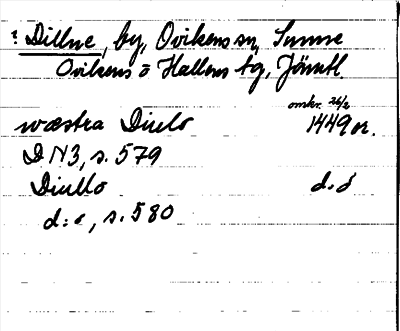 : Dillne, by, Ovikens sn, Sunne
Ovikens o Hallens tg, Jämtl.
omkr. 26/2
wæstra Diulo 1449 or.
DN3, s. 579
Diullo d. o
d:o, s. 580